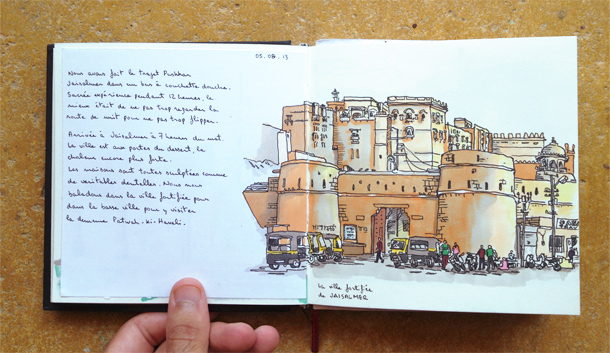 05.08.13
Nous avons fait le trajet Pushkar
Jaisalmer dans un bus à couchette double.
Sacrée expérience pendant 12 heures, le
mieux était de ne pas trop regarder la
route de nuit pour ne pas trop flipper.
Arrivée à Jaisalmer à 7 heures du mat.
La ville est aux portes du désert, la
chaleur encore plus forte.
Les maisons sont toutes sculptées comme
de véritables dentelles. Nous nous
baladons dans la ville fortifiée puis
dans la basse ville pour y visiter
la demeure Patwah-ki-Haveli.
La ville fortifiée
de JAISALMER